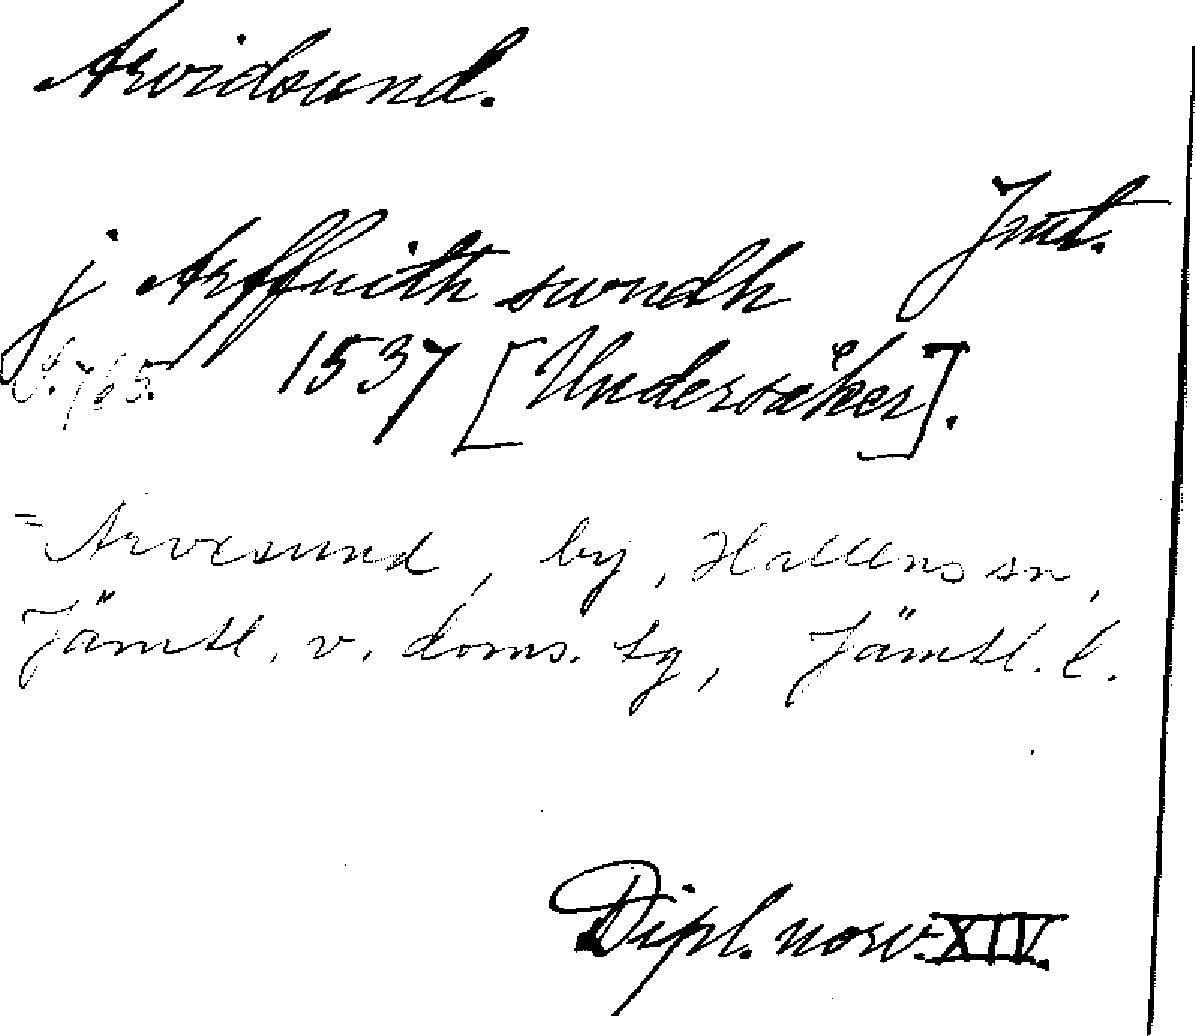 Arvidsund.
Jmt.
j Arffuith swndh
S. 765. 1537 [Undersåker].
= Arvesund, by, Hallens sn,
Jämtl. v. doms. tg, Jämtl. l.
Dipl. norv. XIV.